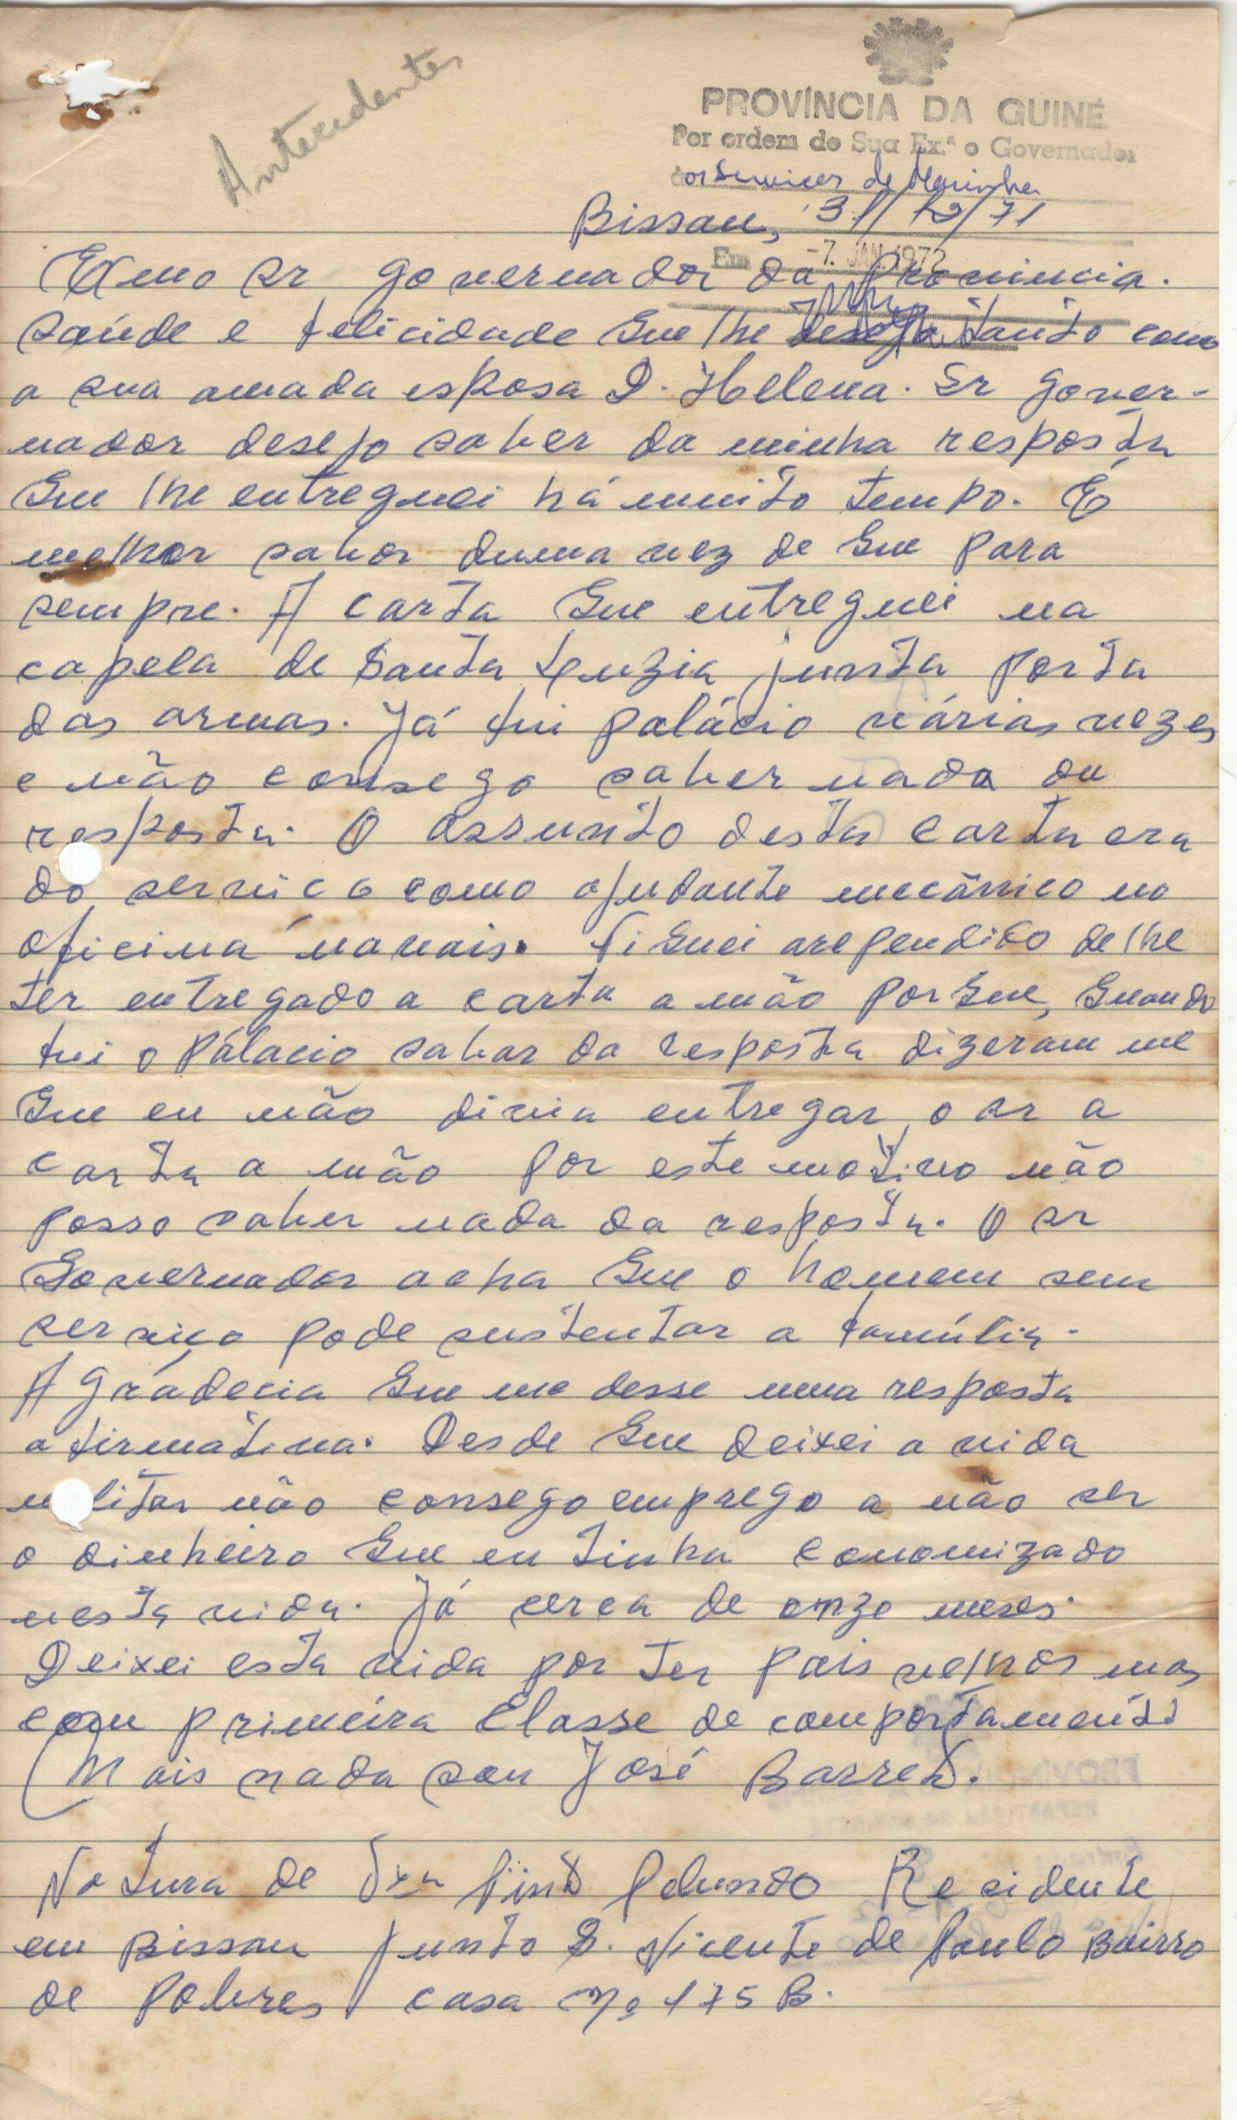 Antecedentes
PROVÍNCIA DA GUINÉ
Por ordem de Sua Ex.ª o Governador
aos Serviços de Marinha
Bissau, 31/12/71
Em -7. JAN. 1972
Exmo Sr governador da Provincia.
Saúde e felicidade que lhe deseja tanto como
a sua amada esposa D. Helena. Sr gover-
nador desejo saber da minha resposta
que lhe entreguei há muito tempo. É
melhor saber duma vez de que para
sempre. A carta que entreguei na
capela de Santa Luzia junta porta
das armas. Já fui palácio várias vezes
e não consego saber nada da
resposta. O assunto desta carta era
do serviço como ajudante mecânico na
oficina navais. Fiquei arependido de lhe
ter entregado a carta a mão porque, quando
fui o Pálacio saber da resposta dizeram me
que eu não divia entregar o sr a
carta a mão por este motivo não
posso saber nada da resposta. O sr
Governador acha que o homem sem
serviço pode sustentar a família.
Agrádecia que me desse uma resposta
afirmativa. Desde que deixei a vida
militar não consego emprego a não ser
o dinheiro que eu tinha economizado
nesta vida. Já cerca de onze meses.
Deixei esta vida por ter pais velhos mas
com primeira Classe de comportamento
Mais nada sou José Barreto.
Natura de Residente
em Bissau junto S. Vicente de Paulo Bairro
de Pobres casa nº 175 B.